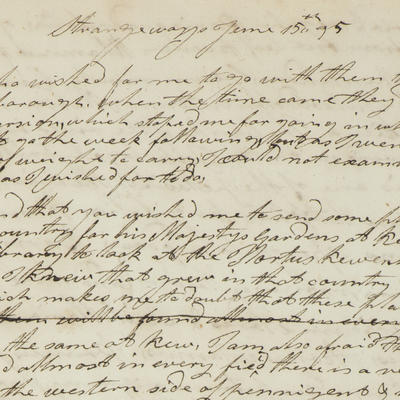 Strangeways June 15th 95
who wished for me to go with them
borough. when the time came they
version, which stoped me for going in
go the week following, but as I wen
of weight to carry, I could not exami
as I wished for to do,
nd that you wished me to send some pl
ountry for his Majestys Gardens at Ke
ibrary to look at the Hortus Kewen
I knew that grew in that country
ich makes me to doubt that these pla
them will be found allmost in every
the same at Kew, I am also afraid th
d allmost in every field there is a
the western side of pennigent &